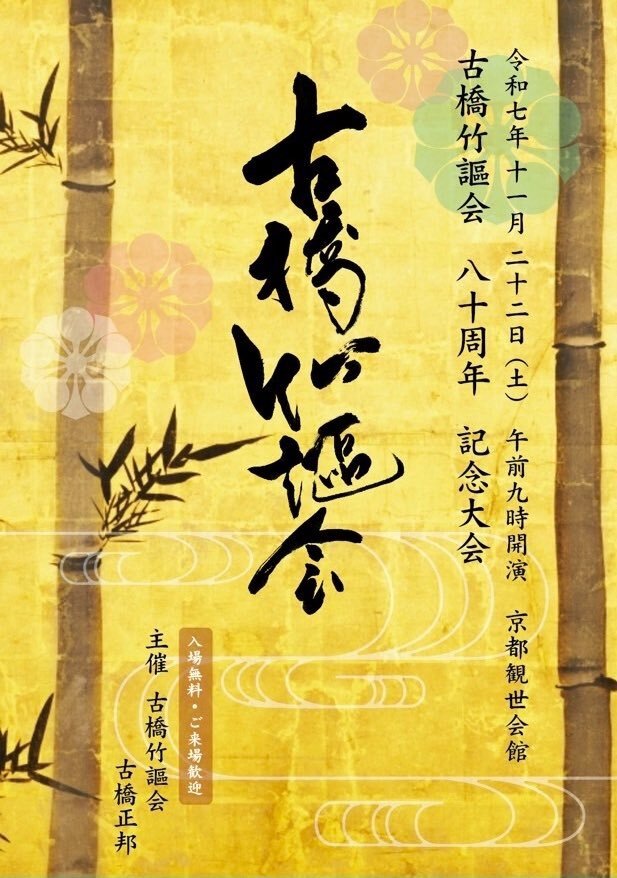 令和七年 十一月 二十二日(土) 午前九時開演 京都観世会館
古橋竹謳会 八十周年 記念大会
古橋竹謳会
入場無料・ご来場歓迎
主催 古橋竹謳会
古橋正邦